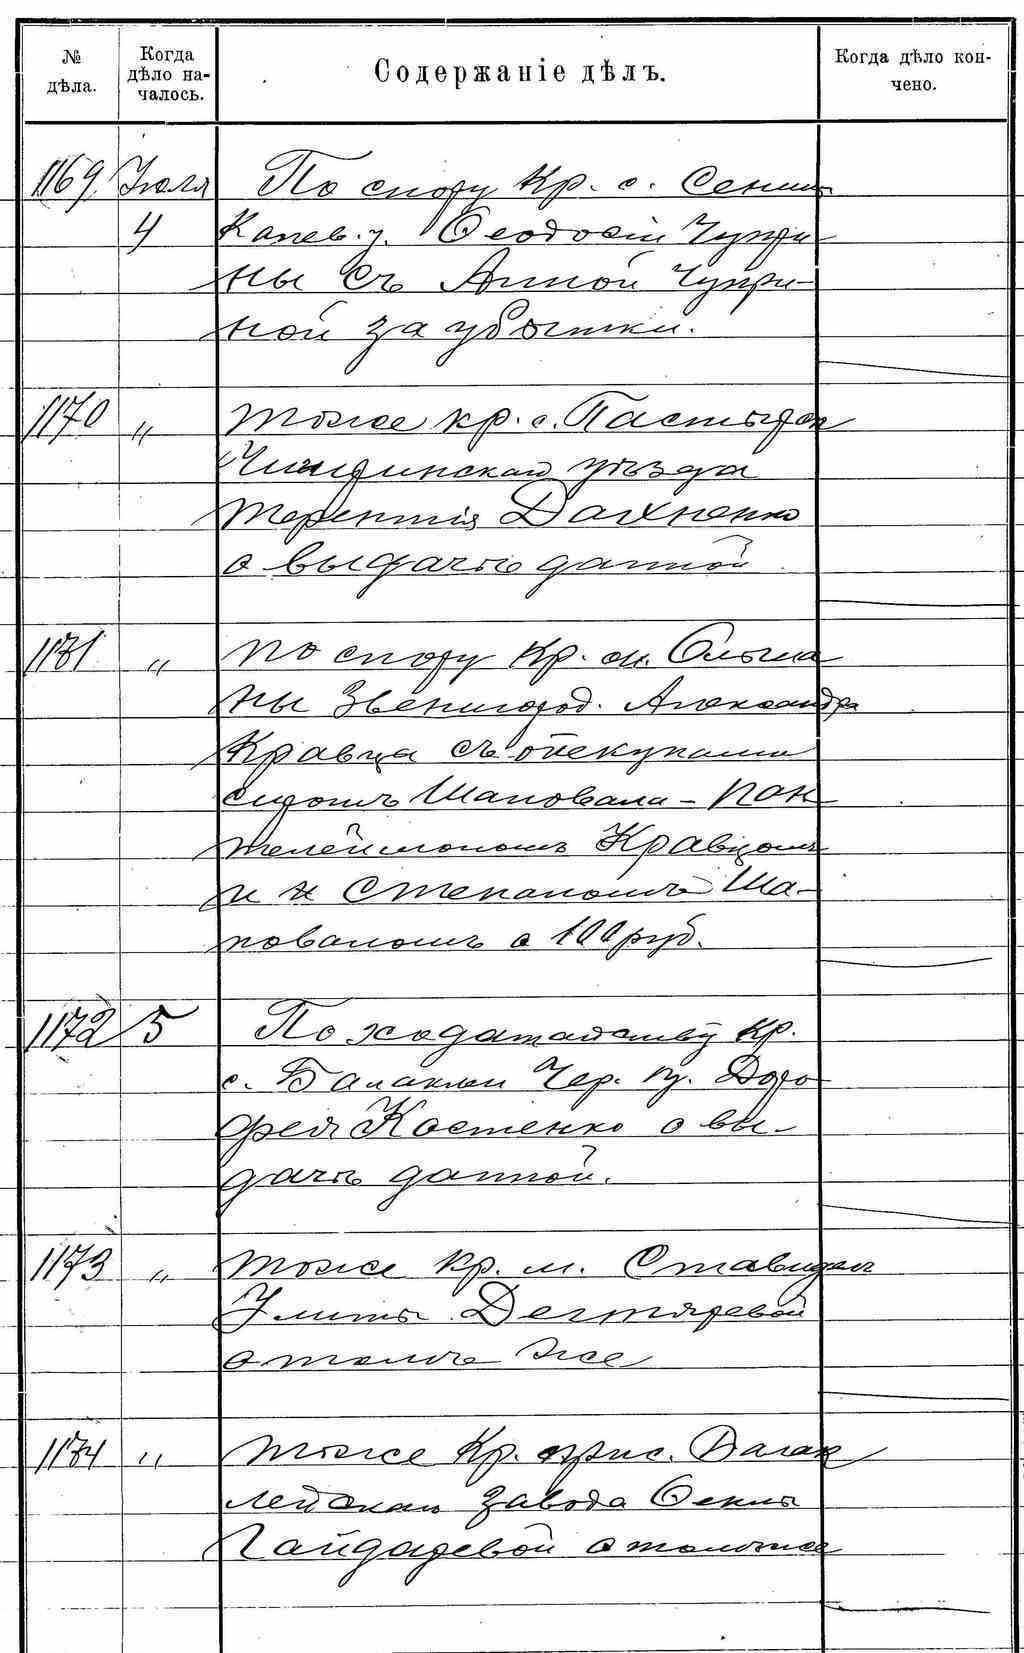 № дѣла.
Когда дѣло на-
чалось.
Содержаніе дѣлъ.
Когда дѣло кон-
чено.
1169. Іюля По спору Кр. с.
4 Канев. у. Ѳеодосія Чупри
ны съ Анной Чупри-
ной за убытки.
1170 „ тоже кр. с. Пастырск
Чигиринскаго уѣзда
Терентія Дахненко
о выдачѣ данной
1171 „ по спору Кр. м. Ольша
ны Звенигород. Александра
Кравца съ опекунами
сиротъ Шаповала - Пан
телеймономъ Кравцомъ
и Степаномъ Ша-
поваломъ о 100 руб.
1172 5 По ходатайству Кр.
с. Балаклеи Чер. у. Доро
фея Костенко о вы-
дачѣ данной.
1173 „ тоже Кр. м.
Улиты Дегтяревой
о томъ же
1174 „ тоже Кр. Балак
лейскаго завода Ѳеклы
Гайдаевой о томъ же